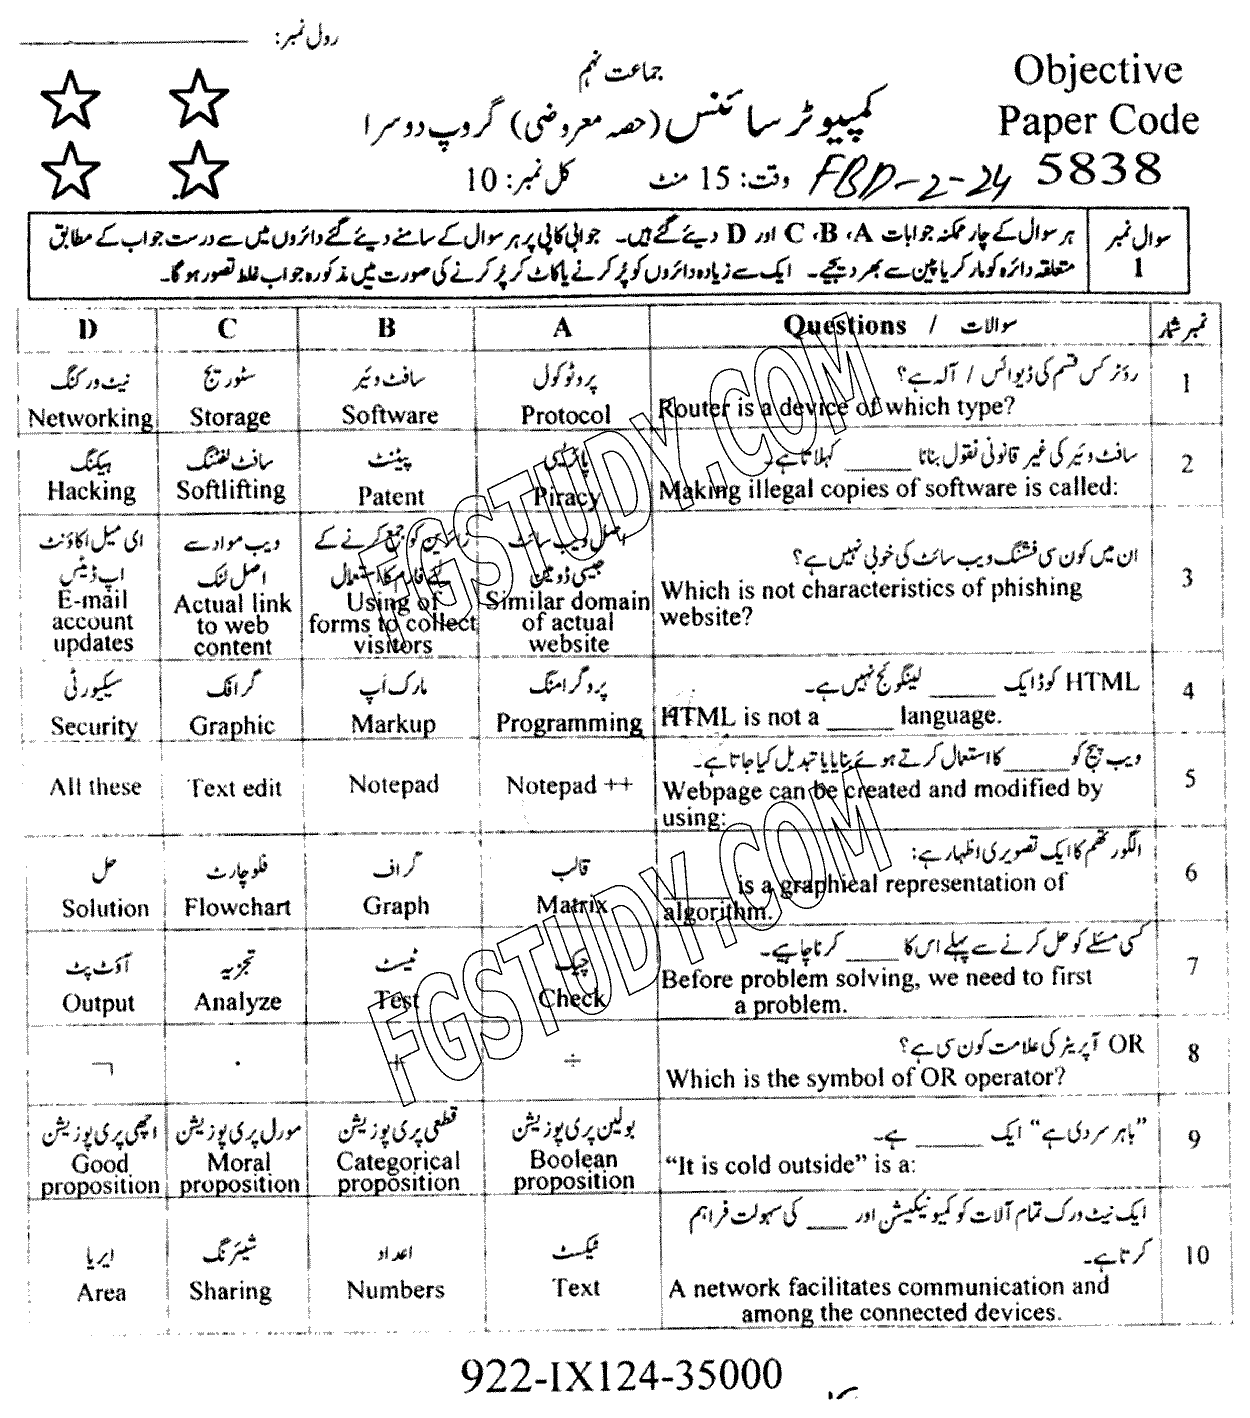 رول نمبر:
جماعت نہم
Objective
Paper Code
5838
کمپیوٹر سائنس (حصہ معروضی) گروپ دوسرا
FBD-2-24
وقت: 15 منٹ
کل نمبر: 10
سوال نمبر 1
ہر سوال کے چار ممکنہ جوابات A، B، C اور D دیئے گئے ہیں۔ جوابی کاپی پر ہر سوال کے سامنے دیئے گئے دائروں میں سے درست جواب کے مطابق
متعلقہ دائرہ کو مارکر یا پین سے بھر دیجیے۔ ایک سے زیادہ دائروں کو پُر کرنے یا کاٹ کر پُر کرنے کی صورت میں مذکورہ جواب غلط تصور ہو گا۔
نمبر شمار
سوالات / Questions
A
B
C
D
1
رؤٹر کس قسم کی ڈیوائس / آلہ ہے؟
Router is a device of which type?
پروٹوکول
Protocol
سافٹ وئیر
Software
سٹوریج
Storage
نیٹ ورکنگ
Networking
2
سافٹ وئیر کی غیر قانونی نقول بنانا _____ کہلاتا ہے۔
Making illegal copies of software is called:
پائریسی
Piracy
پیٹنٹ
Patent
سافٹ لفٹنگ
Softlifting
ہیکنگ
Hacking
3
ان میں کون سی فشنگ ویب سائٹ کی خوبی نہیں ہے؟
Which is not characteristics of phishing
website?
اصل ویب سائٹ
جیسی ڈومین
Similar domain
of actual
website
زائرین کو جمع کرنے کے
لئے فارم کا استعمال
Using of
forms to collect
visitors
ویب مواد سے
اصل لنک
Actual link
to web
content
ای میل اکاؤنٹ
اپ ڈیٹس
E-mail
account
updates
4
HTML کوڈ ایک _____ لینگوئج نہیں ہے۔
HTML is not a _____ language.
پروگرامنگ
Programming
مارک اَپ
Markup
گرافک
Graphic
سیکیورٹی
Security
5
ویب پیج کو _____ کا استعمال کرتے ہوئے بنایا یا تبدیل کیا جاتا ہے۔
Webpage can be created and modified by
using:
Notepad ++
Notepad
Text edit
All these
6
الگورتھم کا ایک تصویری اظہار ہے:
_____ is a graphical representation of
algorithm.
قالب
Matrix
گراف
Graph
فلو چارٹ
Flowchart
حل
Solution
7
کسی مسئلے کو حل کرنے سے پہلے اس کا ____ کرنا چاہیے۔
Before problem solving, we need to first
a problem.
چیک
Check
ٹیسٹ
Test
تجزیہ
Analyze
آؤٹ پٹ
Output
8
OR آپریٹر کی علامت کون سی ہے؟
Which is the symbol of OR operator?
÷
+
.
¬
9
”باہر سردی ہے“ ایک _____ ہے۔
“It is cold outside” is a:
بولین پری پوزیشن
Boolean
proposition
قطعی پری پوزیشن
Categorical
proposition
مورل پری پوزیشن
Moral
proposition
اچھی پری پوزیشن
Good
proposition
10
ایک نیٹ ورک تمام آلات کو کمیونیکیشن اور ___ کی سہولت فراہم
کرتا ہے۔
A network facilitates communication and
among the connected devices.
ٹیکسٹ
Text
اعداد
Numbers
شیئرنگ
Sharing
ایریا
Area
FGSTUDY.COM
FGSTUDY.COM
922-IX124-35000